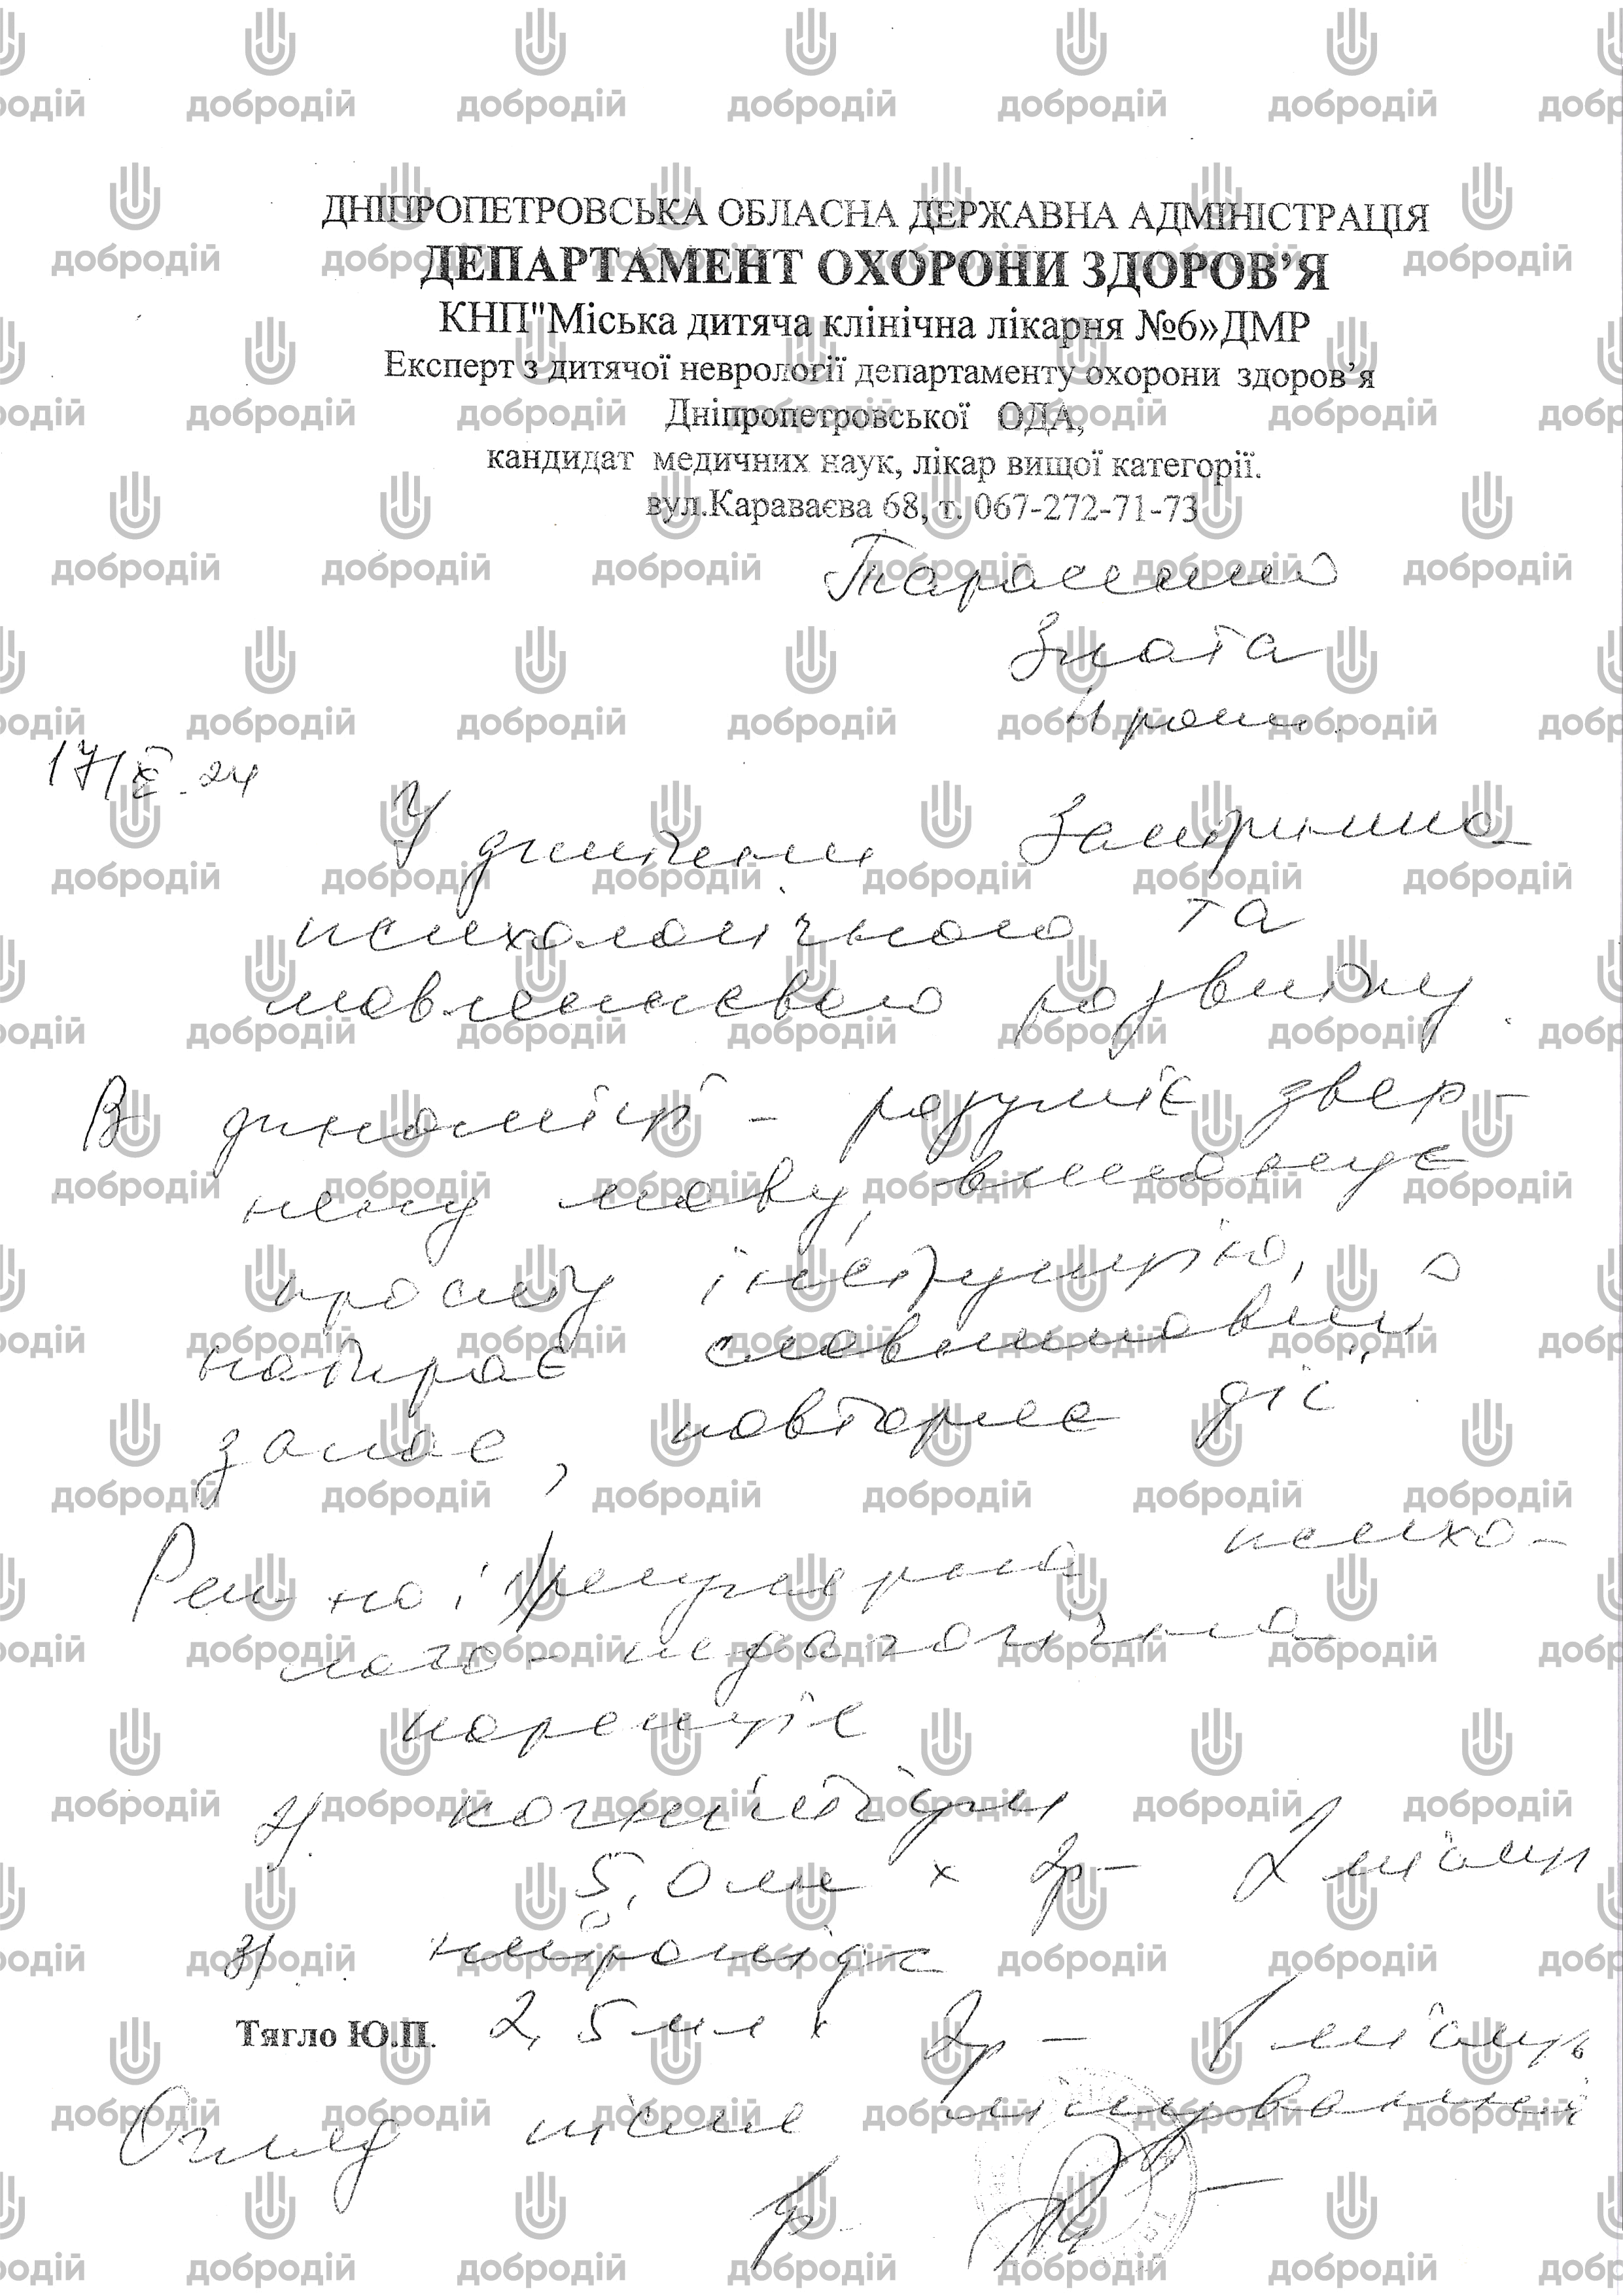 ДНІПРОПЕТРОВСЬКА ОБЛАСНА ДЕРЖАВНА АДМІНІСТРАЦІЯ
ДЕПАРТАМЕНТ ОХОРОНИ ЗДОРОВ’Я
КНП"Міська дитяча клінічна лікарня №6»ДМР
Експерт з дитячої неврології департаменту охорони здоров’я
Дніпропетровської ОДА,
кандидат медичних наук, лікар вищої категорії.
вул.Караваєва 68, т. 067-272-71-73
Тарасенко
Злата
4 роки
17/X.24
У дитини Затримка
психологічного та
мовленнєвого розвитку.
В динаміці - розуміє звер-
нену мову, виконує
просту інструкцію,
набирає словниковий
запас, повторює дії
Рек-но: 1) регулярна психо-
лого-педагогічна
корекція
2) когнітідум
5,0 мл х 2р - 2 місяці
3) нейромідс
Тягло Ю.П. 2,5 мл х 2р - 1 місяць
Огляд після лікування
добродій